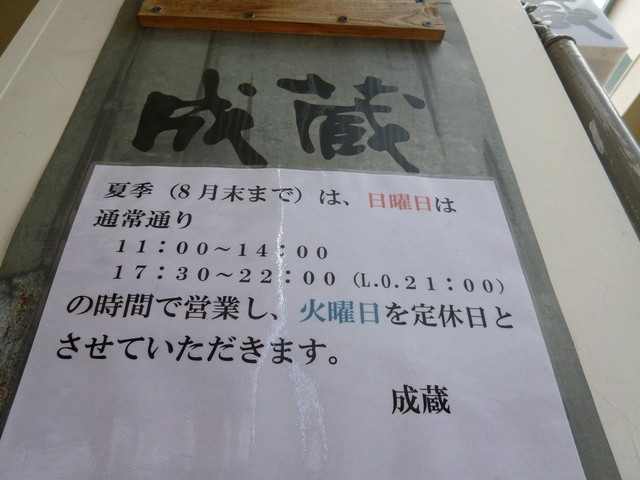 成蔵
夏季（8月末まで）は、日曜日は
通常通り
11：00～14：00
17：30～22：00（L.O.21：00）
の時間で営業し、火曜日を定休日と
させていただきます。
成蔵